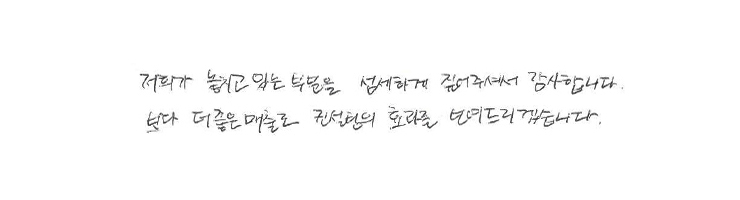 저희가 놓치고 있는 부분을 섬세하게 짚어주셔서 감사합니다.
보다 더 좋은 매출로 컨설턴의 효과를 보여드리겠습니다.